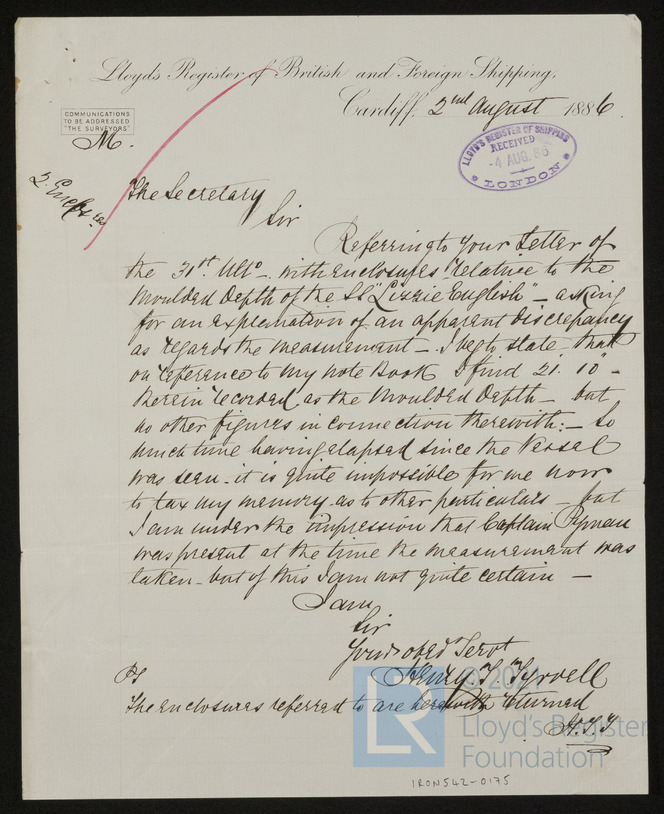 Lloyds Register of British and Foreign Shipping,
Cardiff, 2nd August 1886.
COMMUNICATIONS
TO BE ADDRESSED
"THE SURVEYORS"
M.
LLOYD'S REGISTER OF SHIPPING
RECEIVED
-4 AUG. 86
LONDON
The Secretary
Sir
Referring to your Letter of
the 31st. Ulto – with enclosures "relative to the
Moulded Depth of the SS "Lizzie English" – asking
for an explanation of an apparent discrepancy
as regards the measurement – I beg to state that
on reference to my note Book I find 21. 10" –
therein recorded as the Moulded Depth – but
no other figures in connection therewith: – So
much time having elapsed since the Vessel
was seen – it is quite impossible for me now
to tax my memory as to other particulars – but
I am under the impression that Captain
was present at the time the measurement was
taken – but of this I am not quite certain –
I am
Sir
Your obedt Servt
Henry T Tyrrell
PS
The enclosures referred to are herewith returned
H.T.T
© 2021
LR
Lloyd's Register
Foundation
IRON542-0175